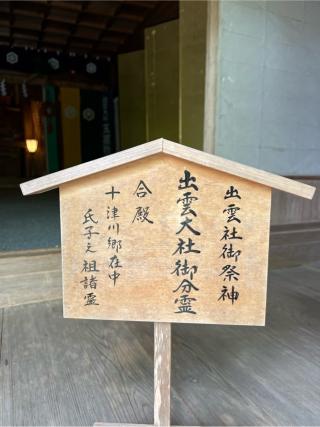 出雲社御祭神
出雲大社御分霊
合殿
十津川郷在中
氏子之祖諸霊